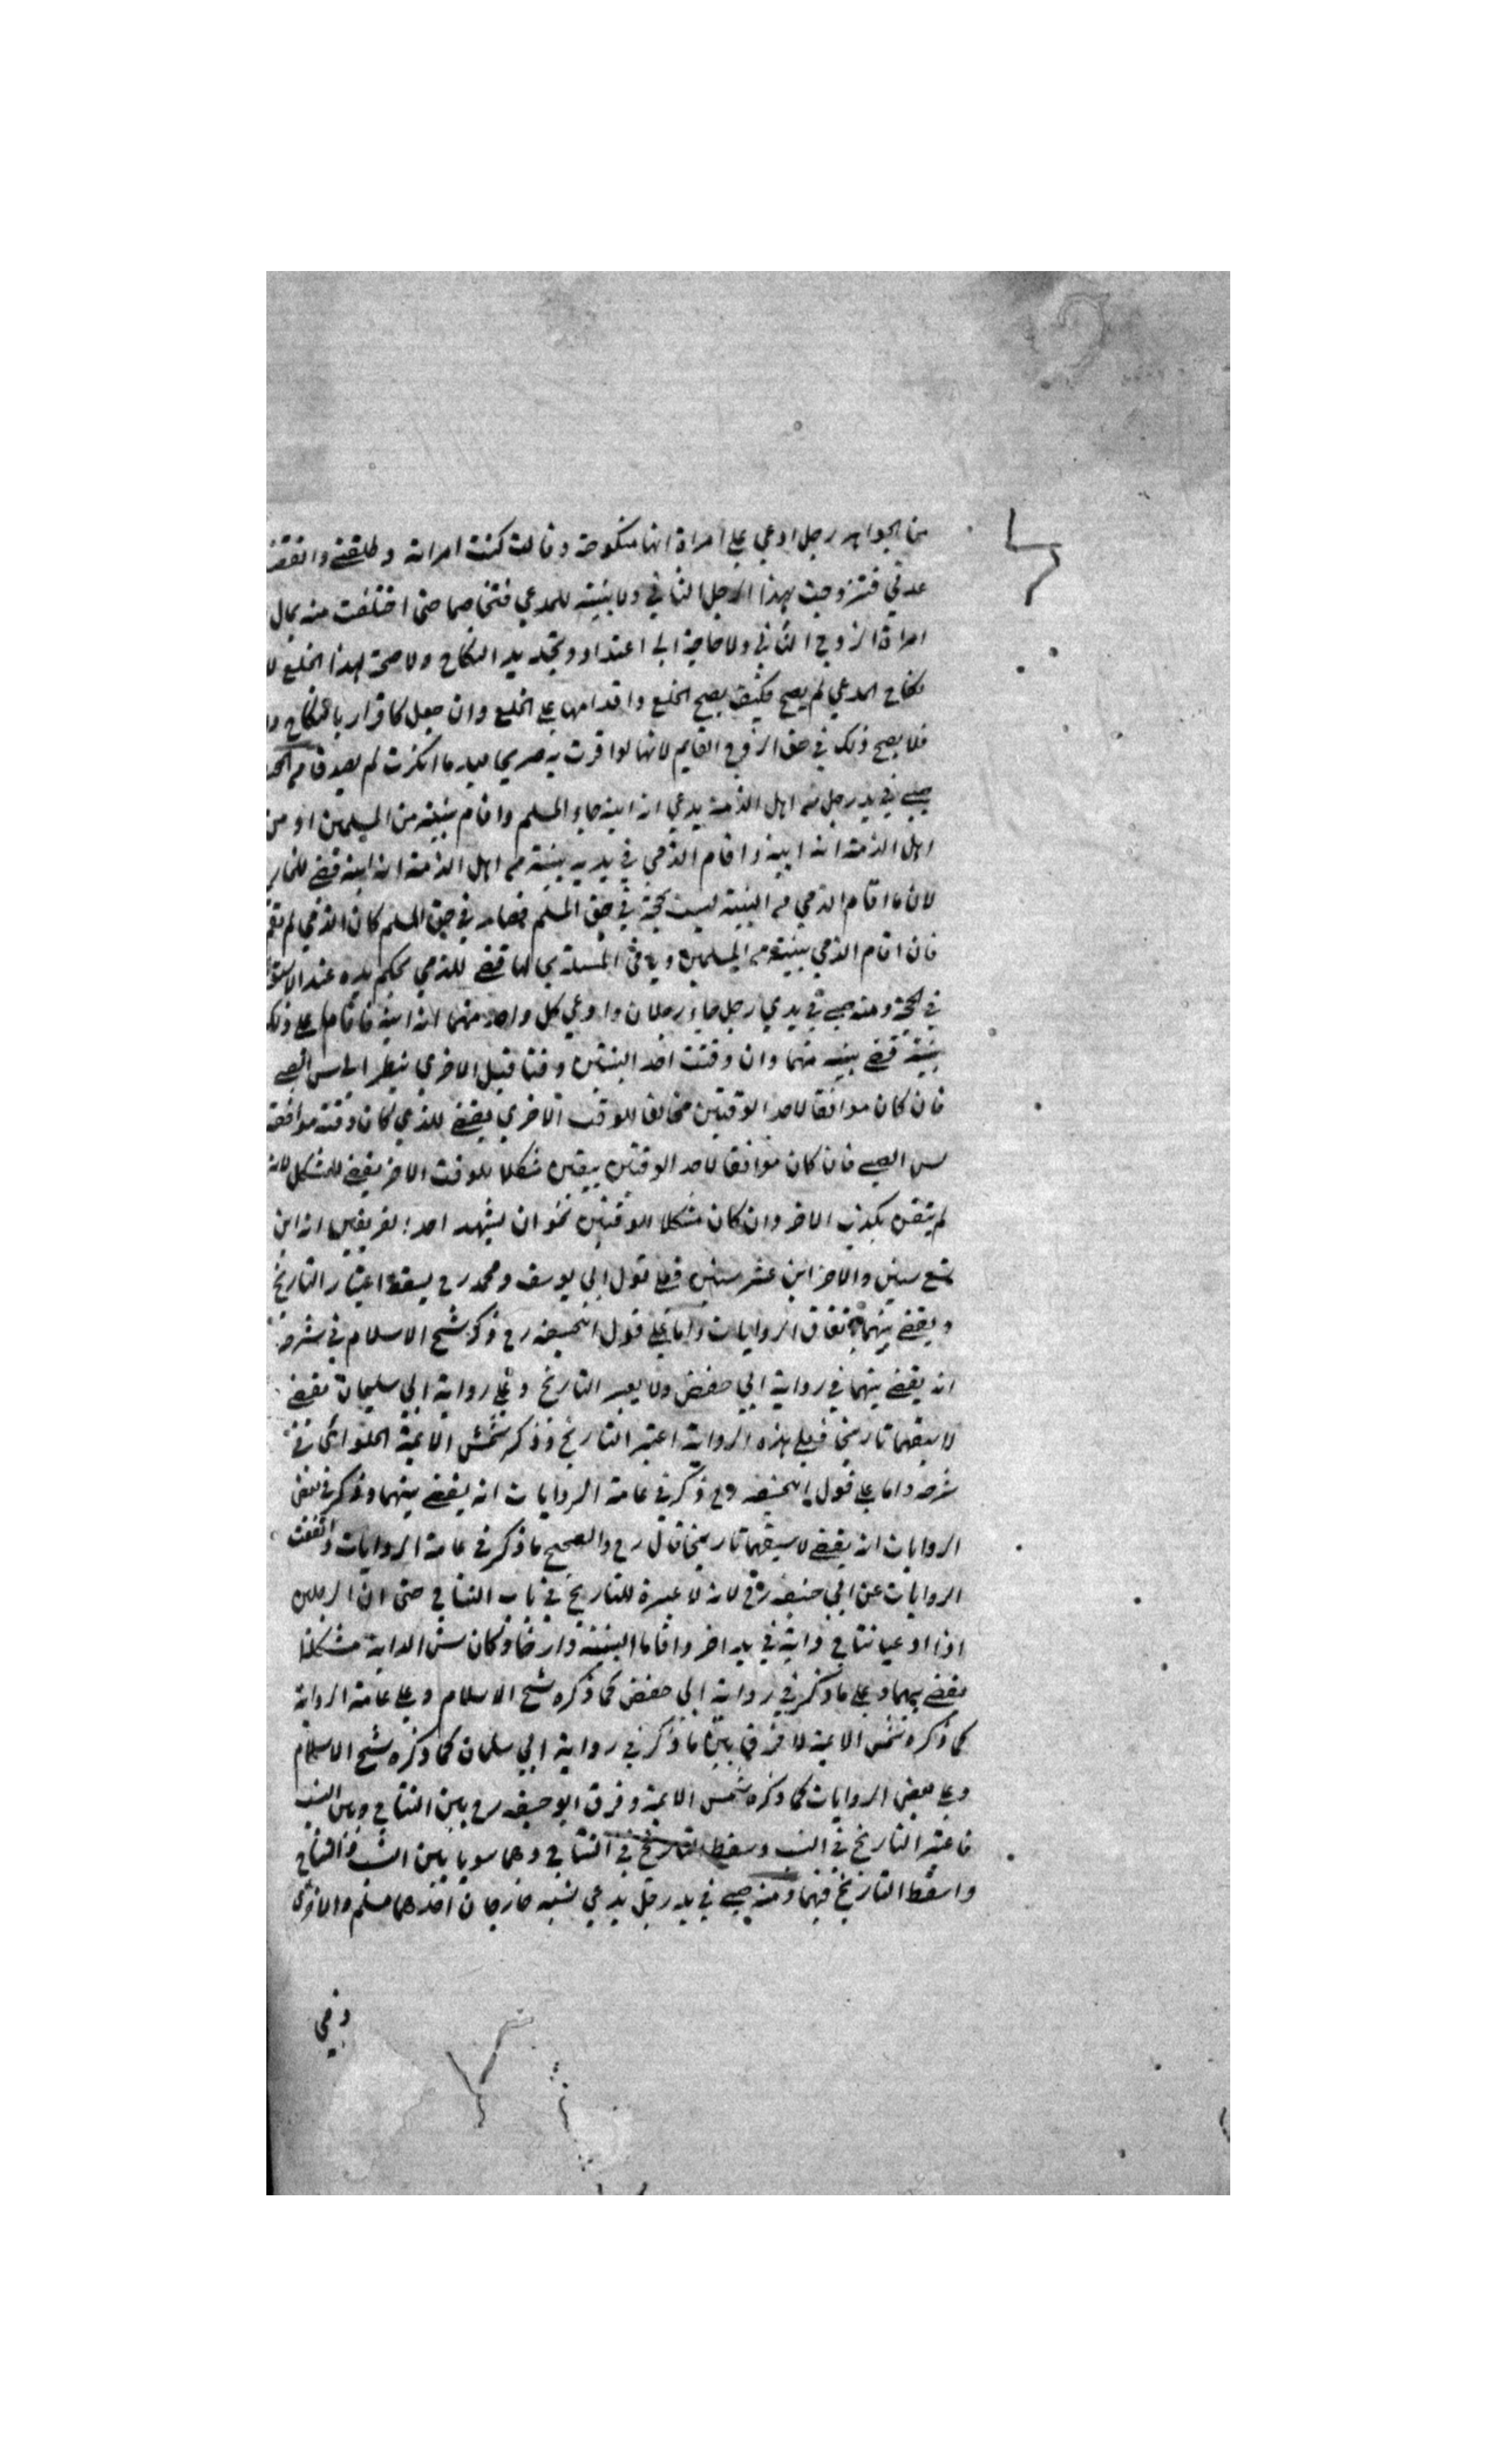 من الجواهر رجل ادعي علي امراة انها منكوحته وقالت كنت امراته وطلقني وانقضت
عدتي فتزوجت بهذا الرجل الثاني ولا بينة للمدعي فتخاصما حتى اختلفت منه بمال
امراة الزوج الثاني ولا حاجة الي اعتداد وتجديد النكاح ولا صحة لهذا الخلع لا
نكاح المدعي لم يصح فكيف يصح الخلع واقدامها علي الخلع وان جعل كاقرار بالنكاح
فلا يصح ذلك في حق الزوج القايم لانها لو اقرت به صريحا بعد ما انكرت لم يصدقا
صبي في يد رجل من اهل الذمة يدعي انه ابنه جاء المسلم واقام بينة من المسلمين او من
اهل الذمة انه ابنه واقام الذمي في يديه بينة من اهل الذمة انه ابنه قضي للخارج
لان ما اقام الذمي من البينة ليست بحجة في حق المسلم فصار في حق المسلم كان الذمي لم يقم
فان اقام الذمي بينة من المسلمين وباقي المسئلة بحالها قضي للذمي بحكم يده عند الاستوا
في الحجة ومنه صبي في يدي رجل جاء رجلان وادعي كل واحد منهما انه ابنه فاقاما علي ذلك
بينة قضي بينه منهما وان وقتت احد البينتين وقتا قبل الاخري ينظر الي سن الصبي
فان كان موافقا لاحد الوقتين مخالفا للوقت الاخري يقضي للذي كان وقته موافقة
لسن الصبي فان كان موافقا لاحد الوقتين بيقين مشكلا للوقت الاخر يقضي للمشكل لانه
لم يتقن بكذب الاخر وان كان مشكلا للوقتين نحو ان يشهد احد الفريقين انه ابن
تسع سنين والاخر ابن عشر سنين فعلي قول ابي يوسف ومحمد رح يسقط اعتبار التاريخ
ويقضي بينهما باتفاق الروايات واما علي قول ابيحنيفه رح ذكر شيخ الاسلام في شرحه
انه يقضي بينهما في رواية ابي حفص ولا يعبر التاريخ وعلي رواية ابي سليمان يقضي
لاسبقهما تاريخا فعلي هذه الرواية اعتبر التاريخ وذكر شمس الائمة الحلوائي في
شرحه واما علي قول ابيحنيفه رح ذكر في عامة الروايات انه يقضي بينهما وذكر في بعض
الروايات انه يقضي لاسبقهما تاريخا قال رح والصحيح ما ذكر في عامة الروايات واتفقت
الروايات عن ابي حنيفه رح لانه لا عبرة للتاريخ في باب النتاج حتى ان الرجلين
اذا ادعيا نتاج دابة في يد اخر واقاما البينة وارخا وكان سن الدابة مشكلا
يقضي بينهما وعلي ما ذكر في رواية ابي حفص كما ذكره شيخ الاسلام وعلي عامة الرواية
كما ذكره شمس الائمة لا فرق بين ما ذكر في رواية ابي سليمان كما ذكره شيخ الاسلام
وعلي بعض الروايات كما ذكره شمس الائمة وفرق ابو حنيفه رح بين النتاج وبين النسب
فاعتبر التاريخ في النسب وسقط التاريخ في النتاج وهما سويا بين النسب والنتاج
واسقط التاريخ فيهما ومنه صبي في يد رجل يدعي نسبه خارجان احدهما مسلم والاخر
ذمي